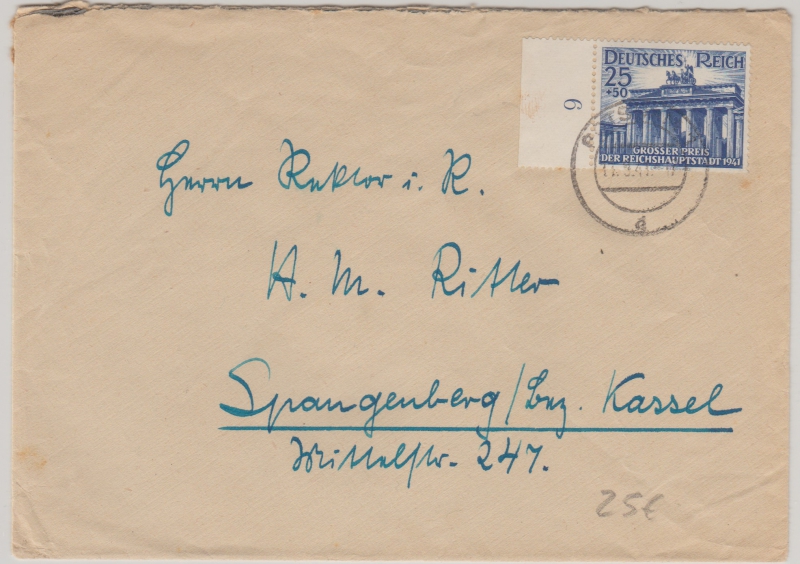 DEUTSCHES REICH
25
+50
GROSSER PREIS
DER REICHSHAUPTSTADT 1941
9
d
Herrn Rektor i. R.
H. M. Ritter
Spangenberg/Bez. Kassel
Mittelstr. 247.
25€